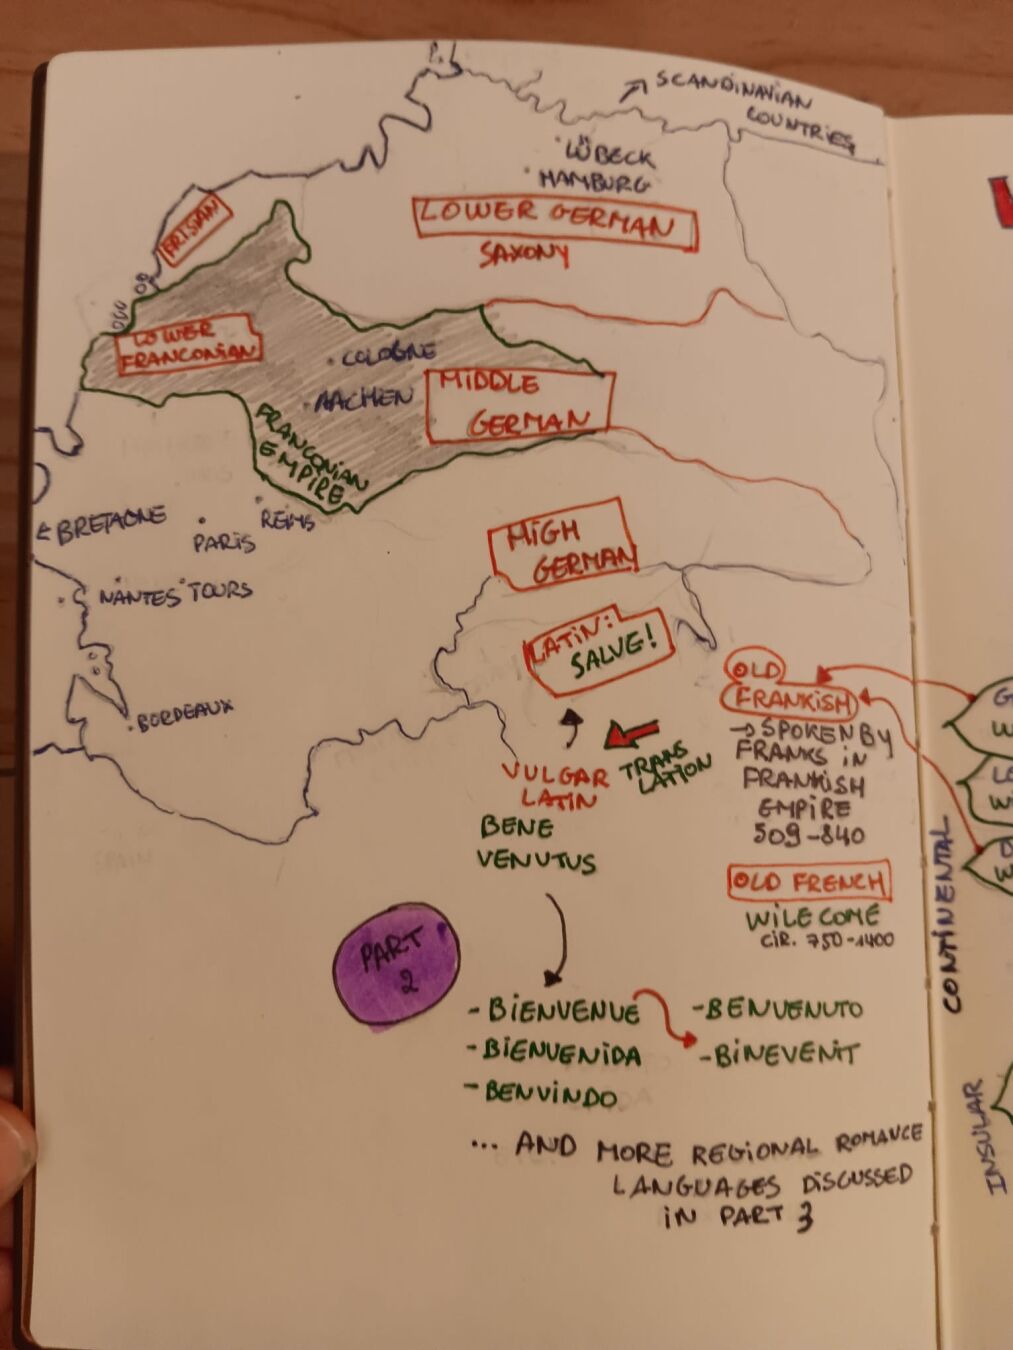 SCANDINAVIAN
COUNTRIES
LÜBECK
HAMBURG
LOWER GERMAN
SAXONY
FRISIAN
LOWER
FRANCONIAN
COLOGNE
AACHEN
MIDDLE
GERMAN
FRANCONIAN
EMPIRE
BRETAGNE
PARIS
REIMS
NANTES
TOURS
BORDEAUX
HIGH
GERMAN
LATIN:
SALVE!
TRANS
LATION
VULGAR
LATIN
BENE
VENUTUS
OLD
FRANKISH
→ SPOKEN BY
FRANKS IN
FRANKISH
EMPIRE
509-840
OLD FRENCH
WILECOME
CIR. 750-1400
PART
2
- BIENVENUE
- BIENVENIDA
- BENVINDO
- BENVENUTO
- BINEVENIT
... AND MORE REGIONAL ROMANCE
LANGUAGES DISCUSSED
IN PART 3
CONTINENTAL
INSULAR